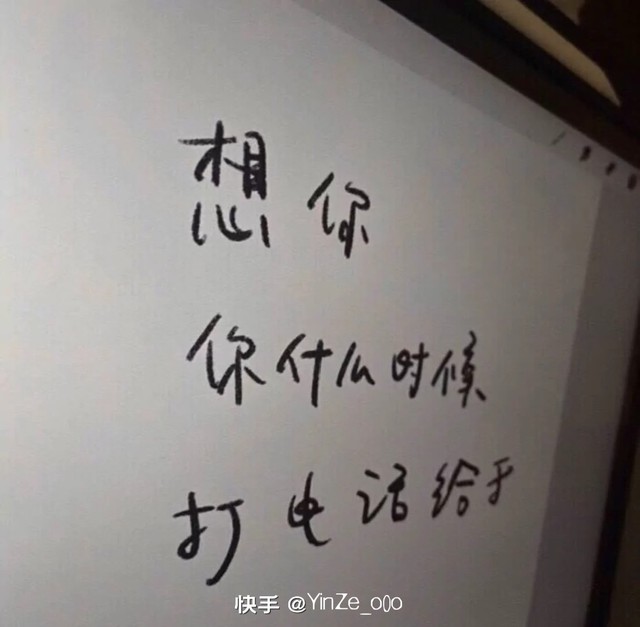 想你
你什么时候
打电话给于
快手 @YinZe_o0o